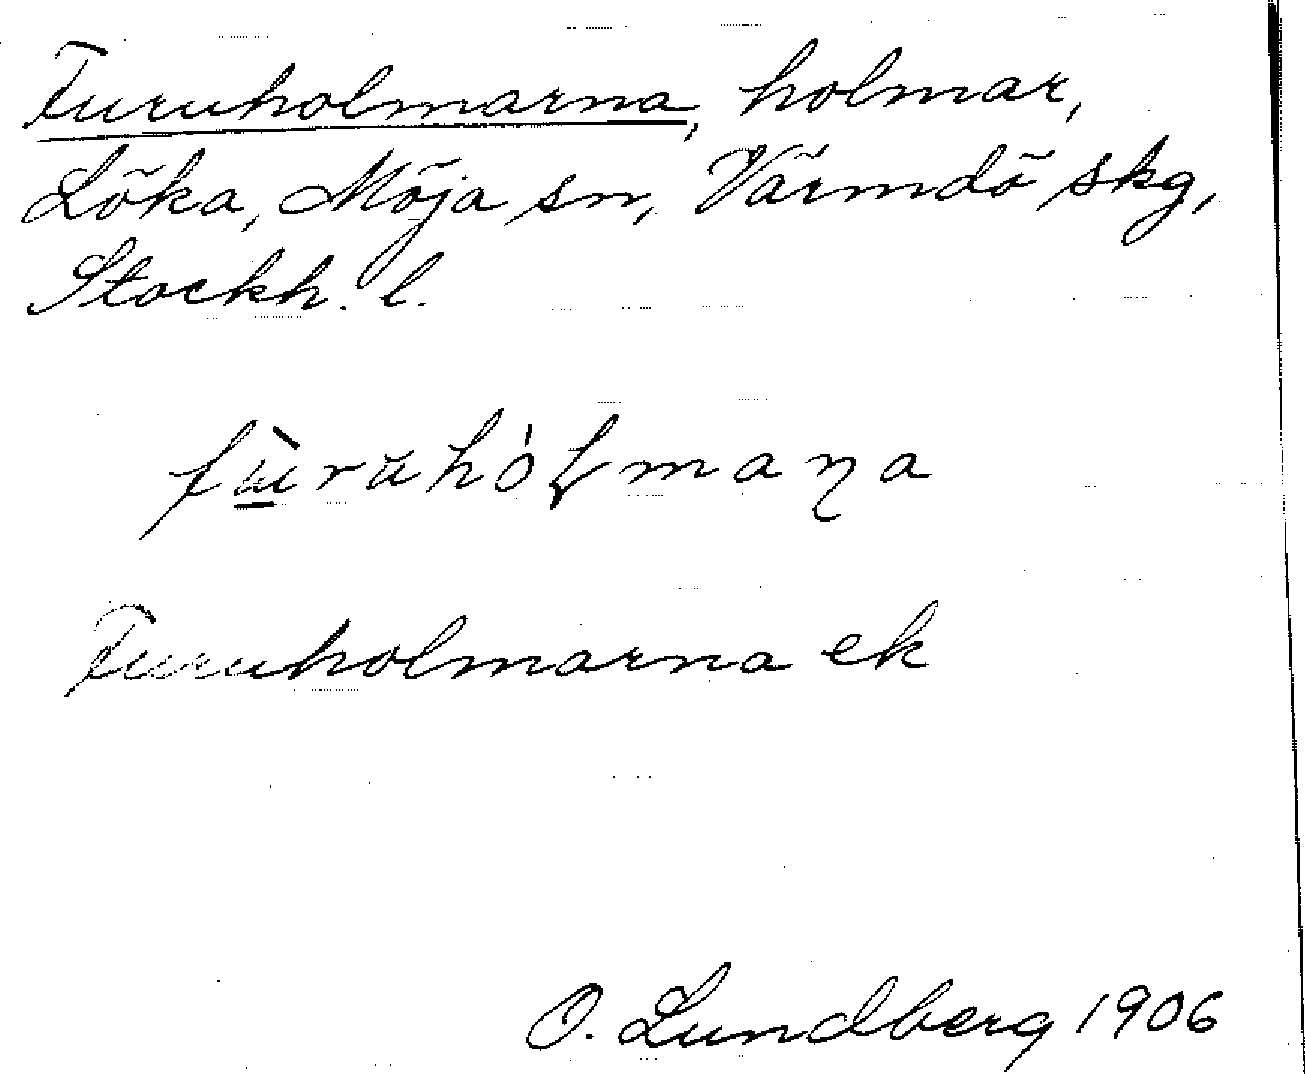 Furuholmarna, holmar,
Löka, Möja sn, Värmdö skg,
Stockh. l.
fùruhól̥maɳa
Furuholmarna ek
O. Lundberg 1906